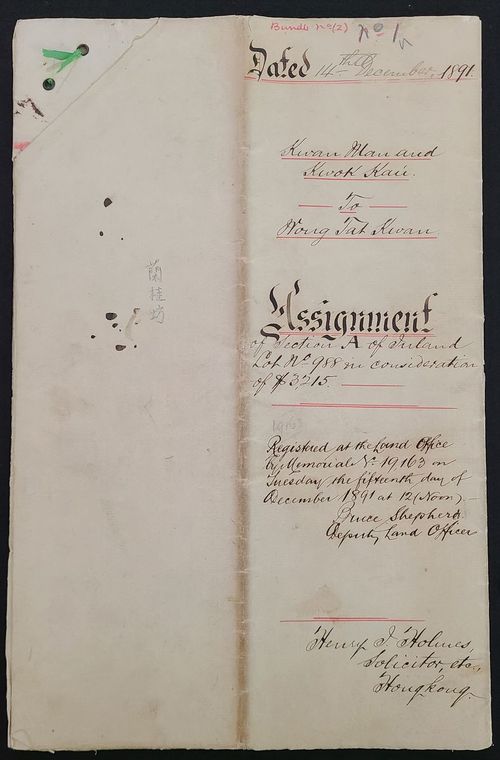 Bundle No (2)
No 1
Dated 14th December, 1891.
Kwan Man and
Kwok Kau.
To
Wong Tat Kwan
Assignment
of Section A of Inland
Lot No. 988 in consideration
of $3215.
19163
Registered at the Land Office
by Memorial No. 19163 on
Tuesday the fifteenth day of
December 1891 at 12 (Noon).
Bruce Shepherd.
Deputy Land Officer
Henry J. Holmes,
Solicitor, etc.,
Hongkong.
蘭桂坊